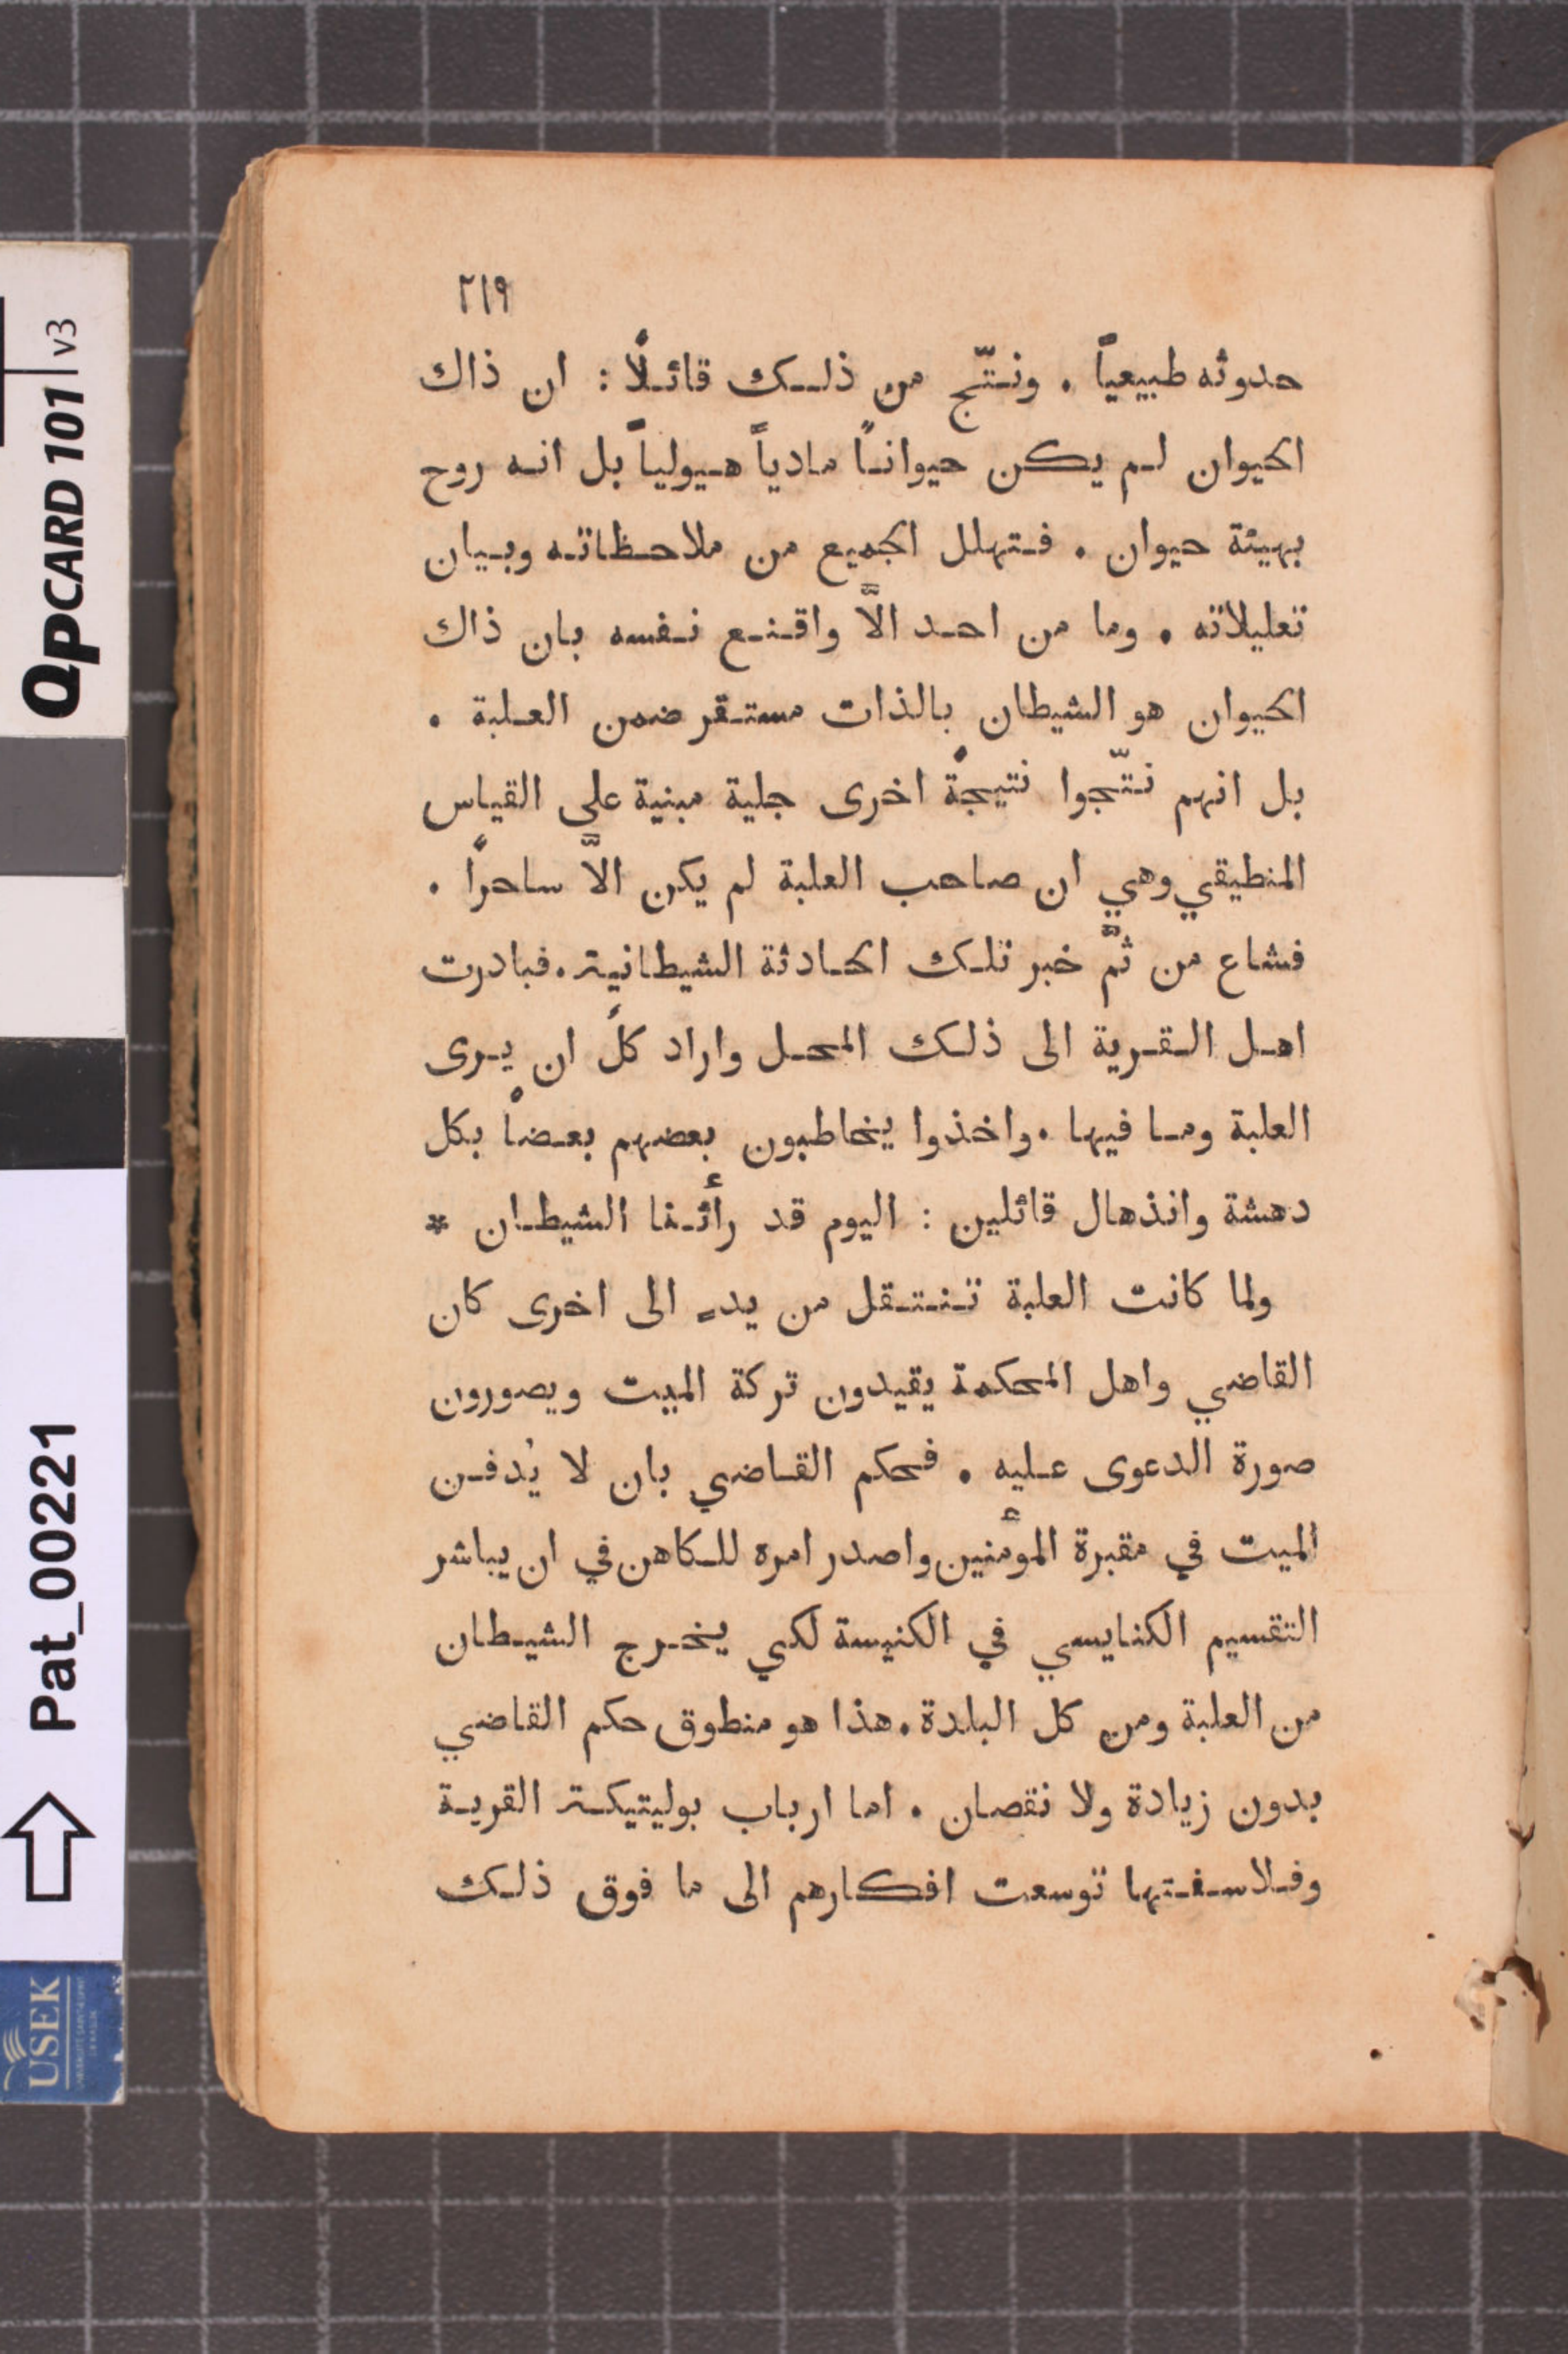 ٢١٩
حدوثه طبيعياً . ونتّج من ذلك قائلاً : ان ذاك
الحيوان لم يكن حيواناً مادياً هيولياً بل انه روح
بهيئة حيوان . فتهلل الجميع من ملاحظاته وبيان
تعليلاته . وما من احد الَّا واقنع نفسه بان ذاك
الحيوان هو الشيطان بالذات مستقر ضمن العلبة .
بل انهم نتّجوا نتيجةً اخرى جلية مبنية على القياس
المنطيقي وهي ان صاحب العلبة لم يكن الَّا ساحراً .
فشاع من ثمَّ خبر تلك الحادثة الشيطانية . فبادرت
اهل القرية الى ذلك المحل واراد كلٌ ان يرى
العلبة وما فيها . واخذوا يخاطبون بعضهم بعضاً بكل
دهشة وانذهال قائلين : اليوم قد رأئنا الشيطان *
ولما كانت العلبة تنتقل من يدٍ الى اخرى كان
القاضي واهل المحكمة يقيدون تركة الميت ويصورون
صورة الدعوى عليه . فحكم القاضي بان لا يُدفن
الميت في مقبرة المؤمنين واصدر امره للكاهن في ان يباشر
التقسيم الكنايسي في الكنيسة لكي يخرج الشيطان
من العلبة ومن كل البلدة . هذا هو منطوق حكم القاضي
بدون زيادة ولا نقصان . اما ارباب بوليتيكة القرية
وفلاسفتها توسعت افكارهم الى ما فوق ذلك
QPCARD 101 v3
Pat_00221
USEK